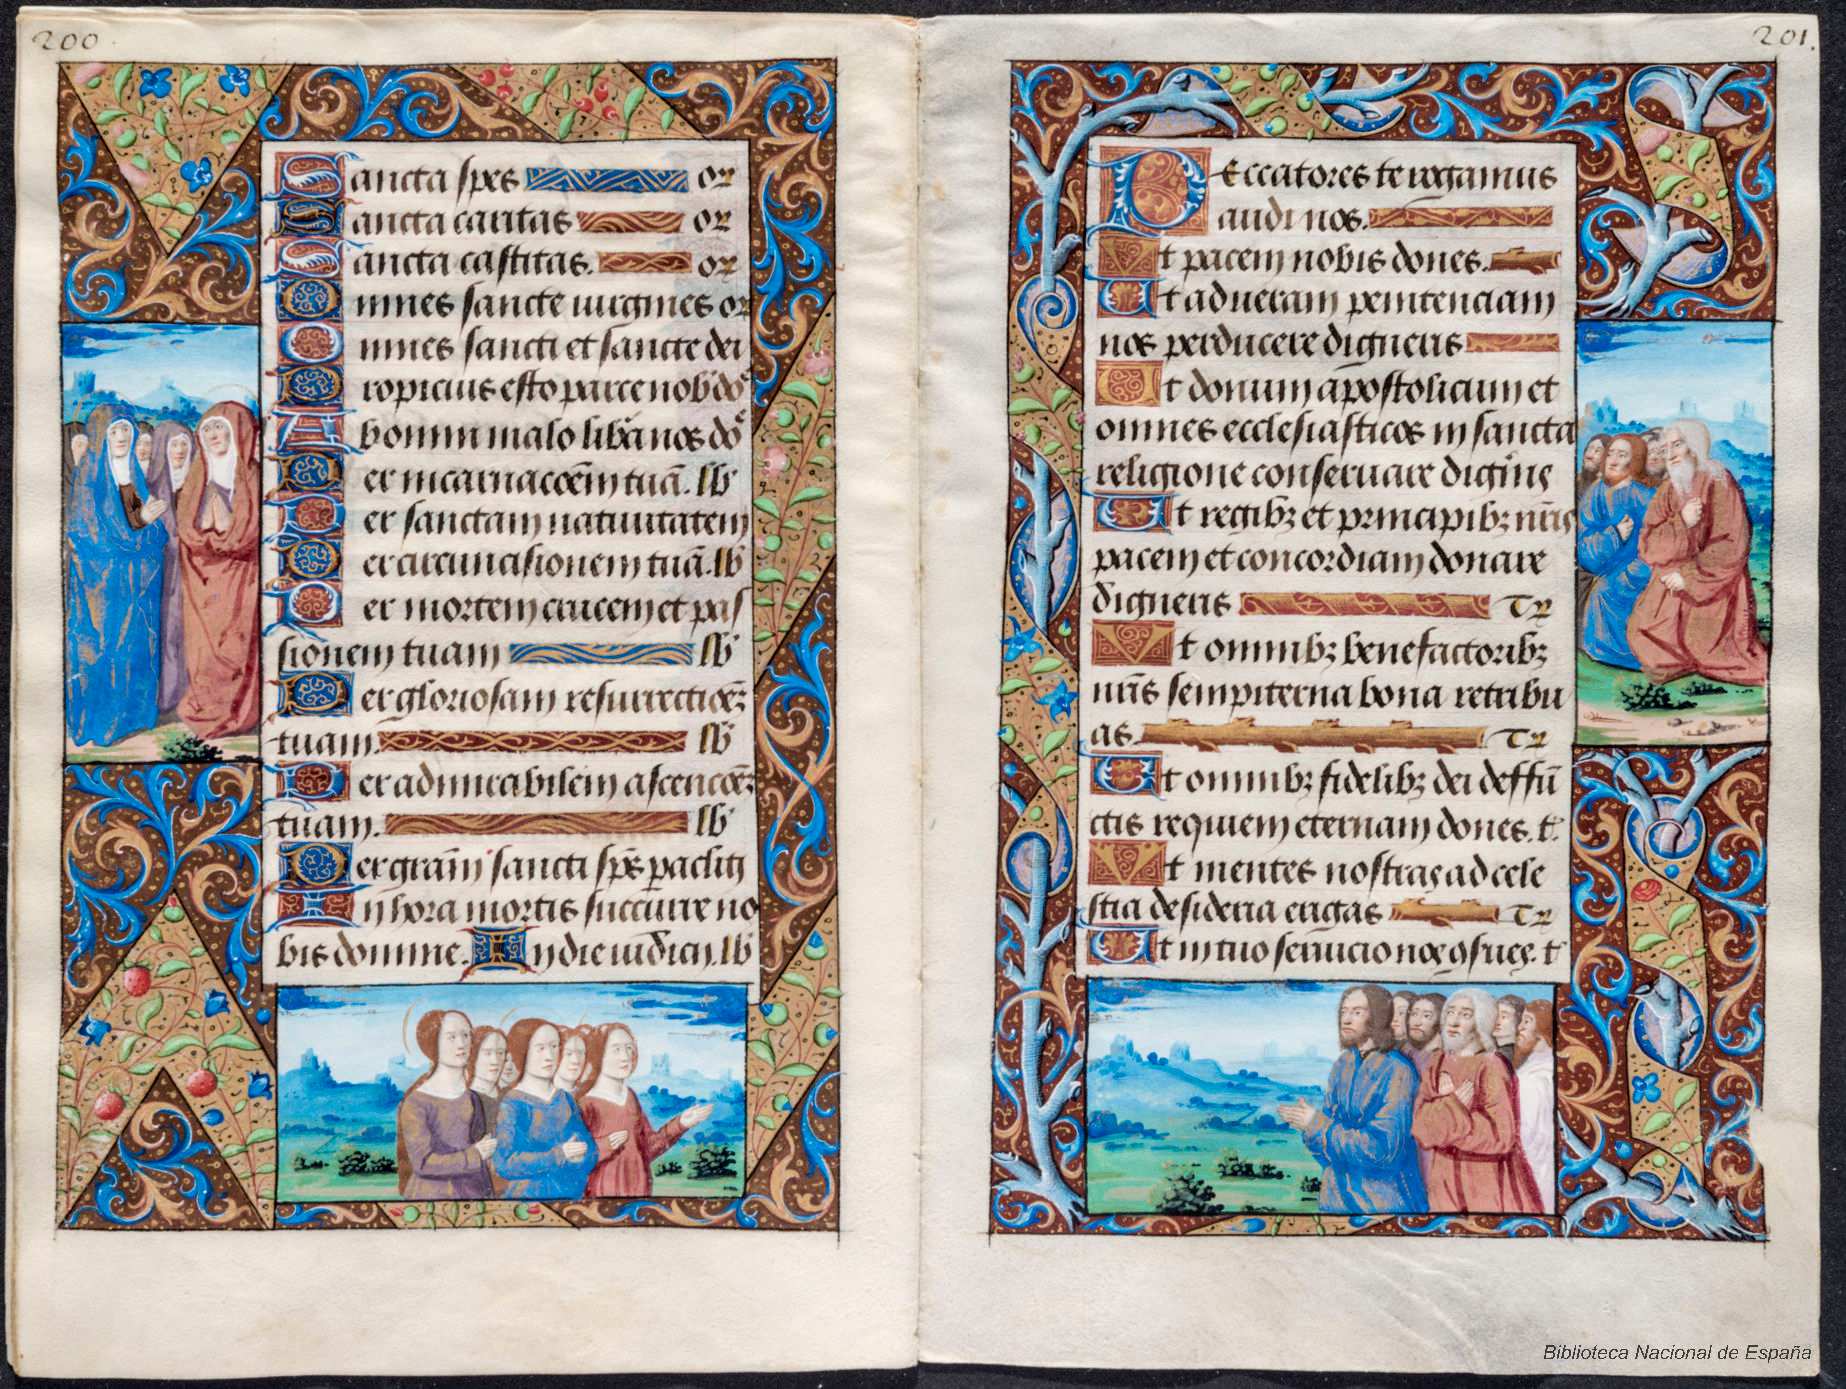 200
Sancta spes or
Sancta caritas or
Sancta castitas. or
Omnes sancte uirgines or
Omnes sancti et sancte dei
Propicius esto parce nob dñe
Ab omni malo libã nos dñe
Per incarnacõem tuã. lb
Per sanctam natiuitatem
Per circuncisionem tuã. lb
Per mortem crucem et pas
sionem tuam lb
Per gloriosam resurrectiõez
tuam. lb
Per admirabilem ascenciõez
tuam. lb
Per grãm sancti sp̃s paracliti
In hora mortis succurre no
bis domine. In die iudicij. lb
201.
Peccatores te rogamus
audi nos.
Vt pacem nobis dones.
Ut ad ueram penitenciam
nos perducere digneris
Ut donum apostolicum et
omnes ecclesiasticos in sancta
religione conseruare digñis
Ut regibꝫ et principibꝫ nr̃is
pacem et concordiam donare
digneris Tꝝ
Vt omnibꝫ benefactoribꝫ
nr̃is sempiterna bona retribu
as. Tꝝ
Ut omnibꝫ fidelibꝫ dei deffũ
ctis requiem eternam dones. t̃.
Vt mentes nostras ad cele
stia desideria erigas Tꝝ
Ut in tuo seruicio nos ꝯfrues. t̃
Biblioteca Nacional de España